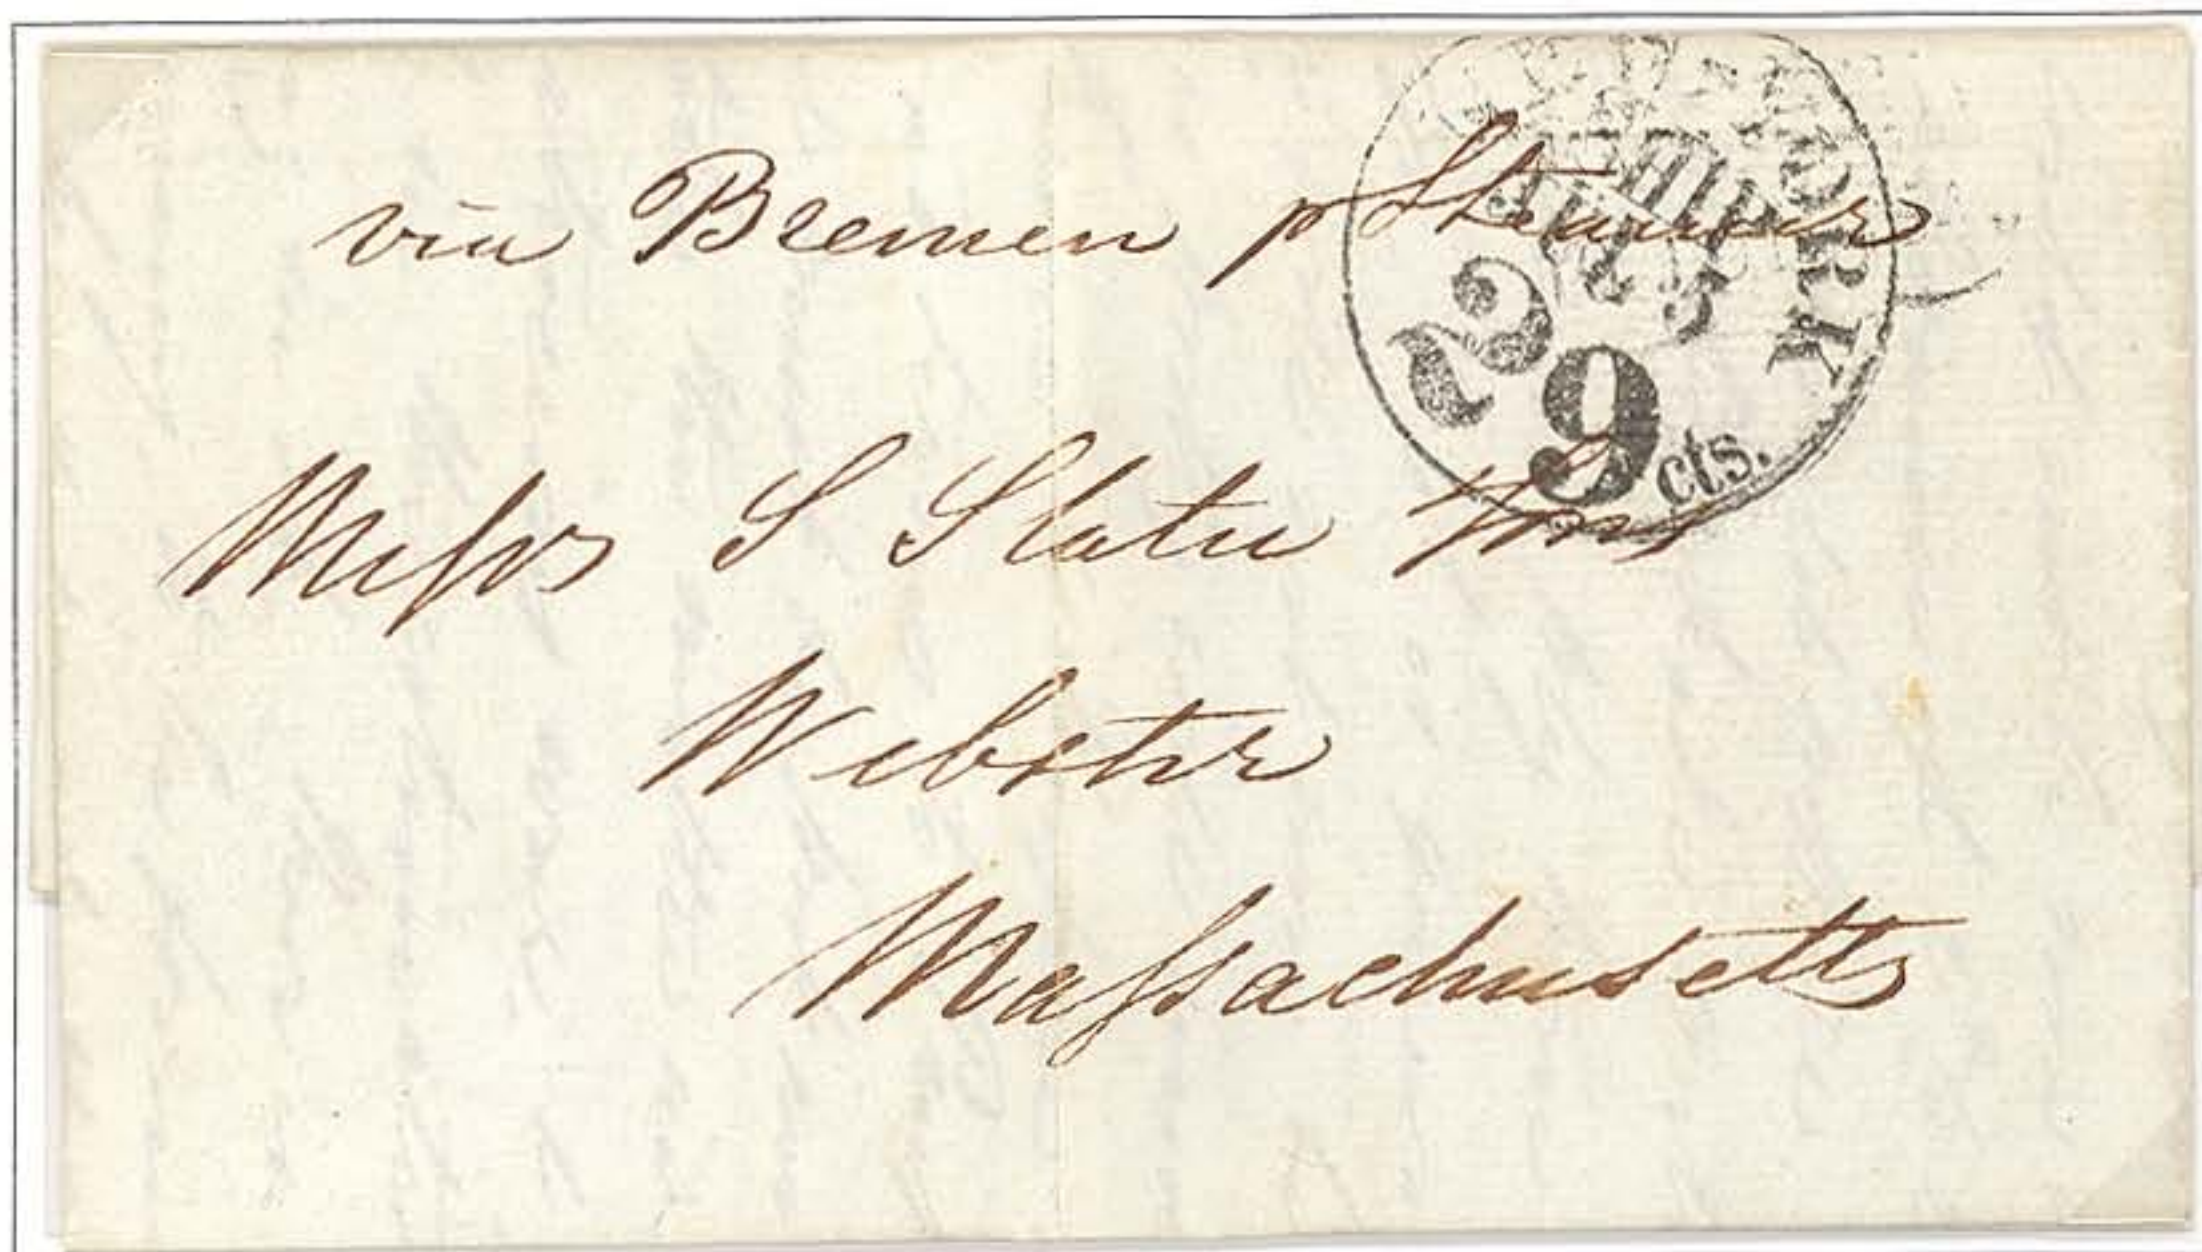 via Bremen p Steamer
YORK
29 cts.
Meſsrs S Slater & Sons
Webster
Maſsachusetts